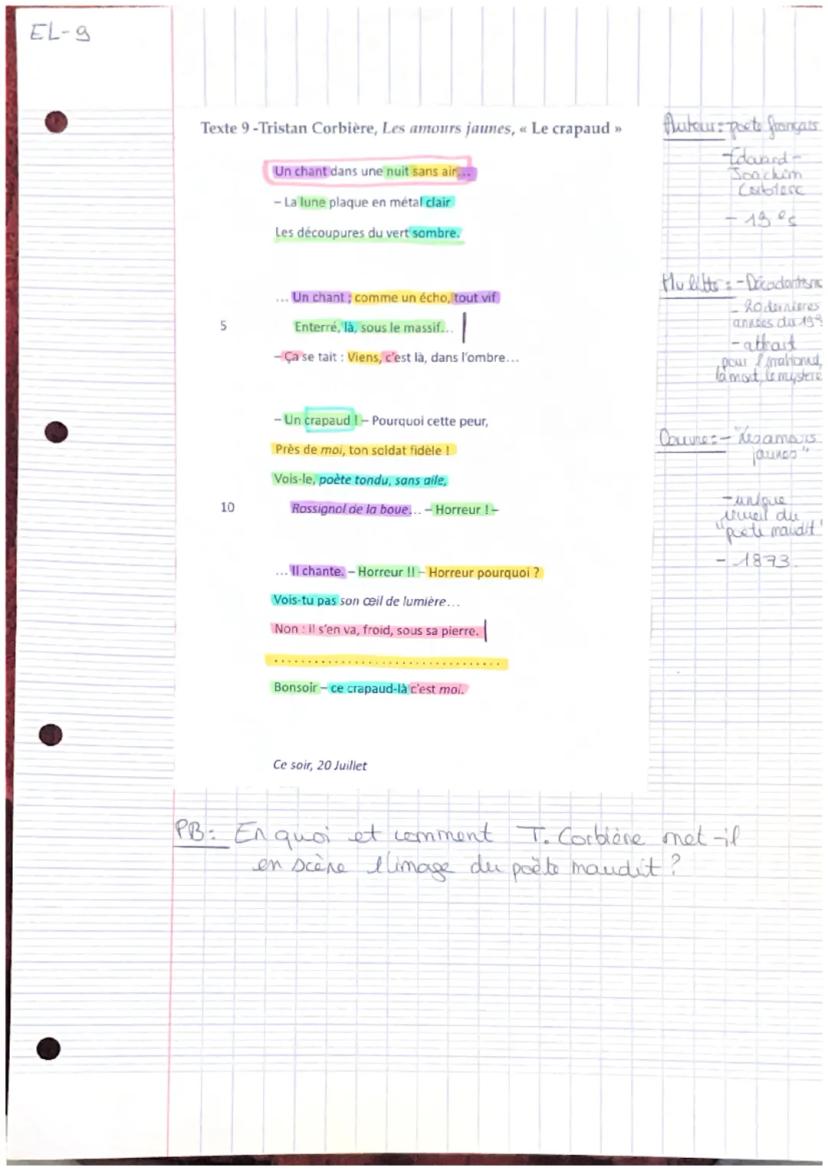 EL-9
Texte 9 -Tristan Corbière, Les amours jaunes, « Le crapaud »
Un chant dans une nuit sans air...
– La lune plaque en métal clair
Les découpures du vert sombre.
... Un chant ; comme un écho, tout vif
5 Enterré, là, sous le massif...
– Ça se tait : Viens, c'est là, dans l'ombre...
– Un crapaud ! – Pourquoi cette peur,
Près de moi, ton soldat fidèle !
Vois-le, poète tondu, sans aile,
10 Rossignol de la boue... – Horreur ! –
... Il chante. – Horreur !! – Horreur pourquoi ?
Vois-tu pas son œil de lumière...
Non : il s'en va, froid, sous sa pierre.
........................................
Bonsoir – ce crapaud-là c'est moi.
Ce soir, 20 Juillet
Auteur : poète français
- Edouard-
Joachim
Corbière
- 19 es
Mv litt : - Décadentisme
- 20 dernières
années du 19e
- attrait
pour l'irrationnel,
la mort, le mystère
Oeuvre : - "Les amours
jaunes"
- unique
recueil du
"poète maudit"
- 1873.
PB : En quoi et comment T. Corbière met-il
en scène l'image du poète maudit ?